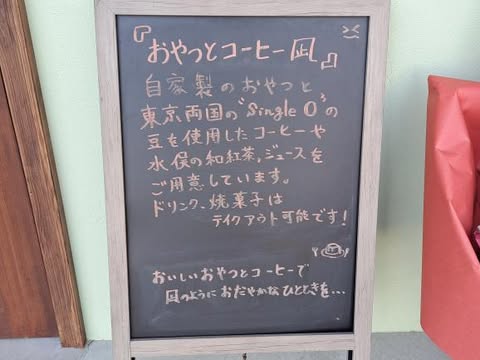 『おやつとコーヒー凪』
自家製のおやつと
東京両国の"Single O"の
豆を使用したコーヒーや
水俣の和紅茶,ジュースを
ご用意しています。
ドリンク、焼菓子は
テイクアウト可能です!
おいしいおやつとコーヒーで
凪のように おだやかなひとときを...